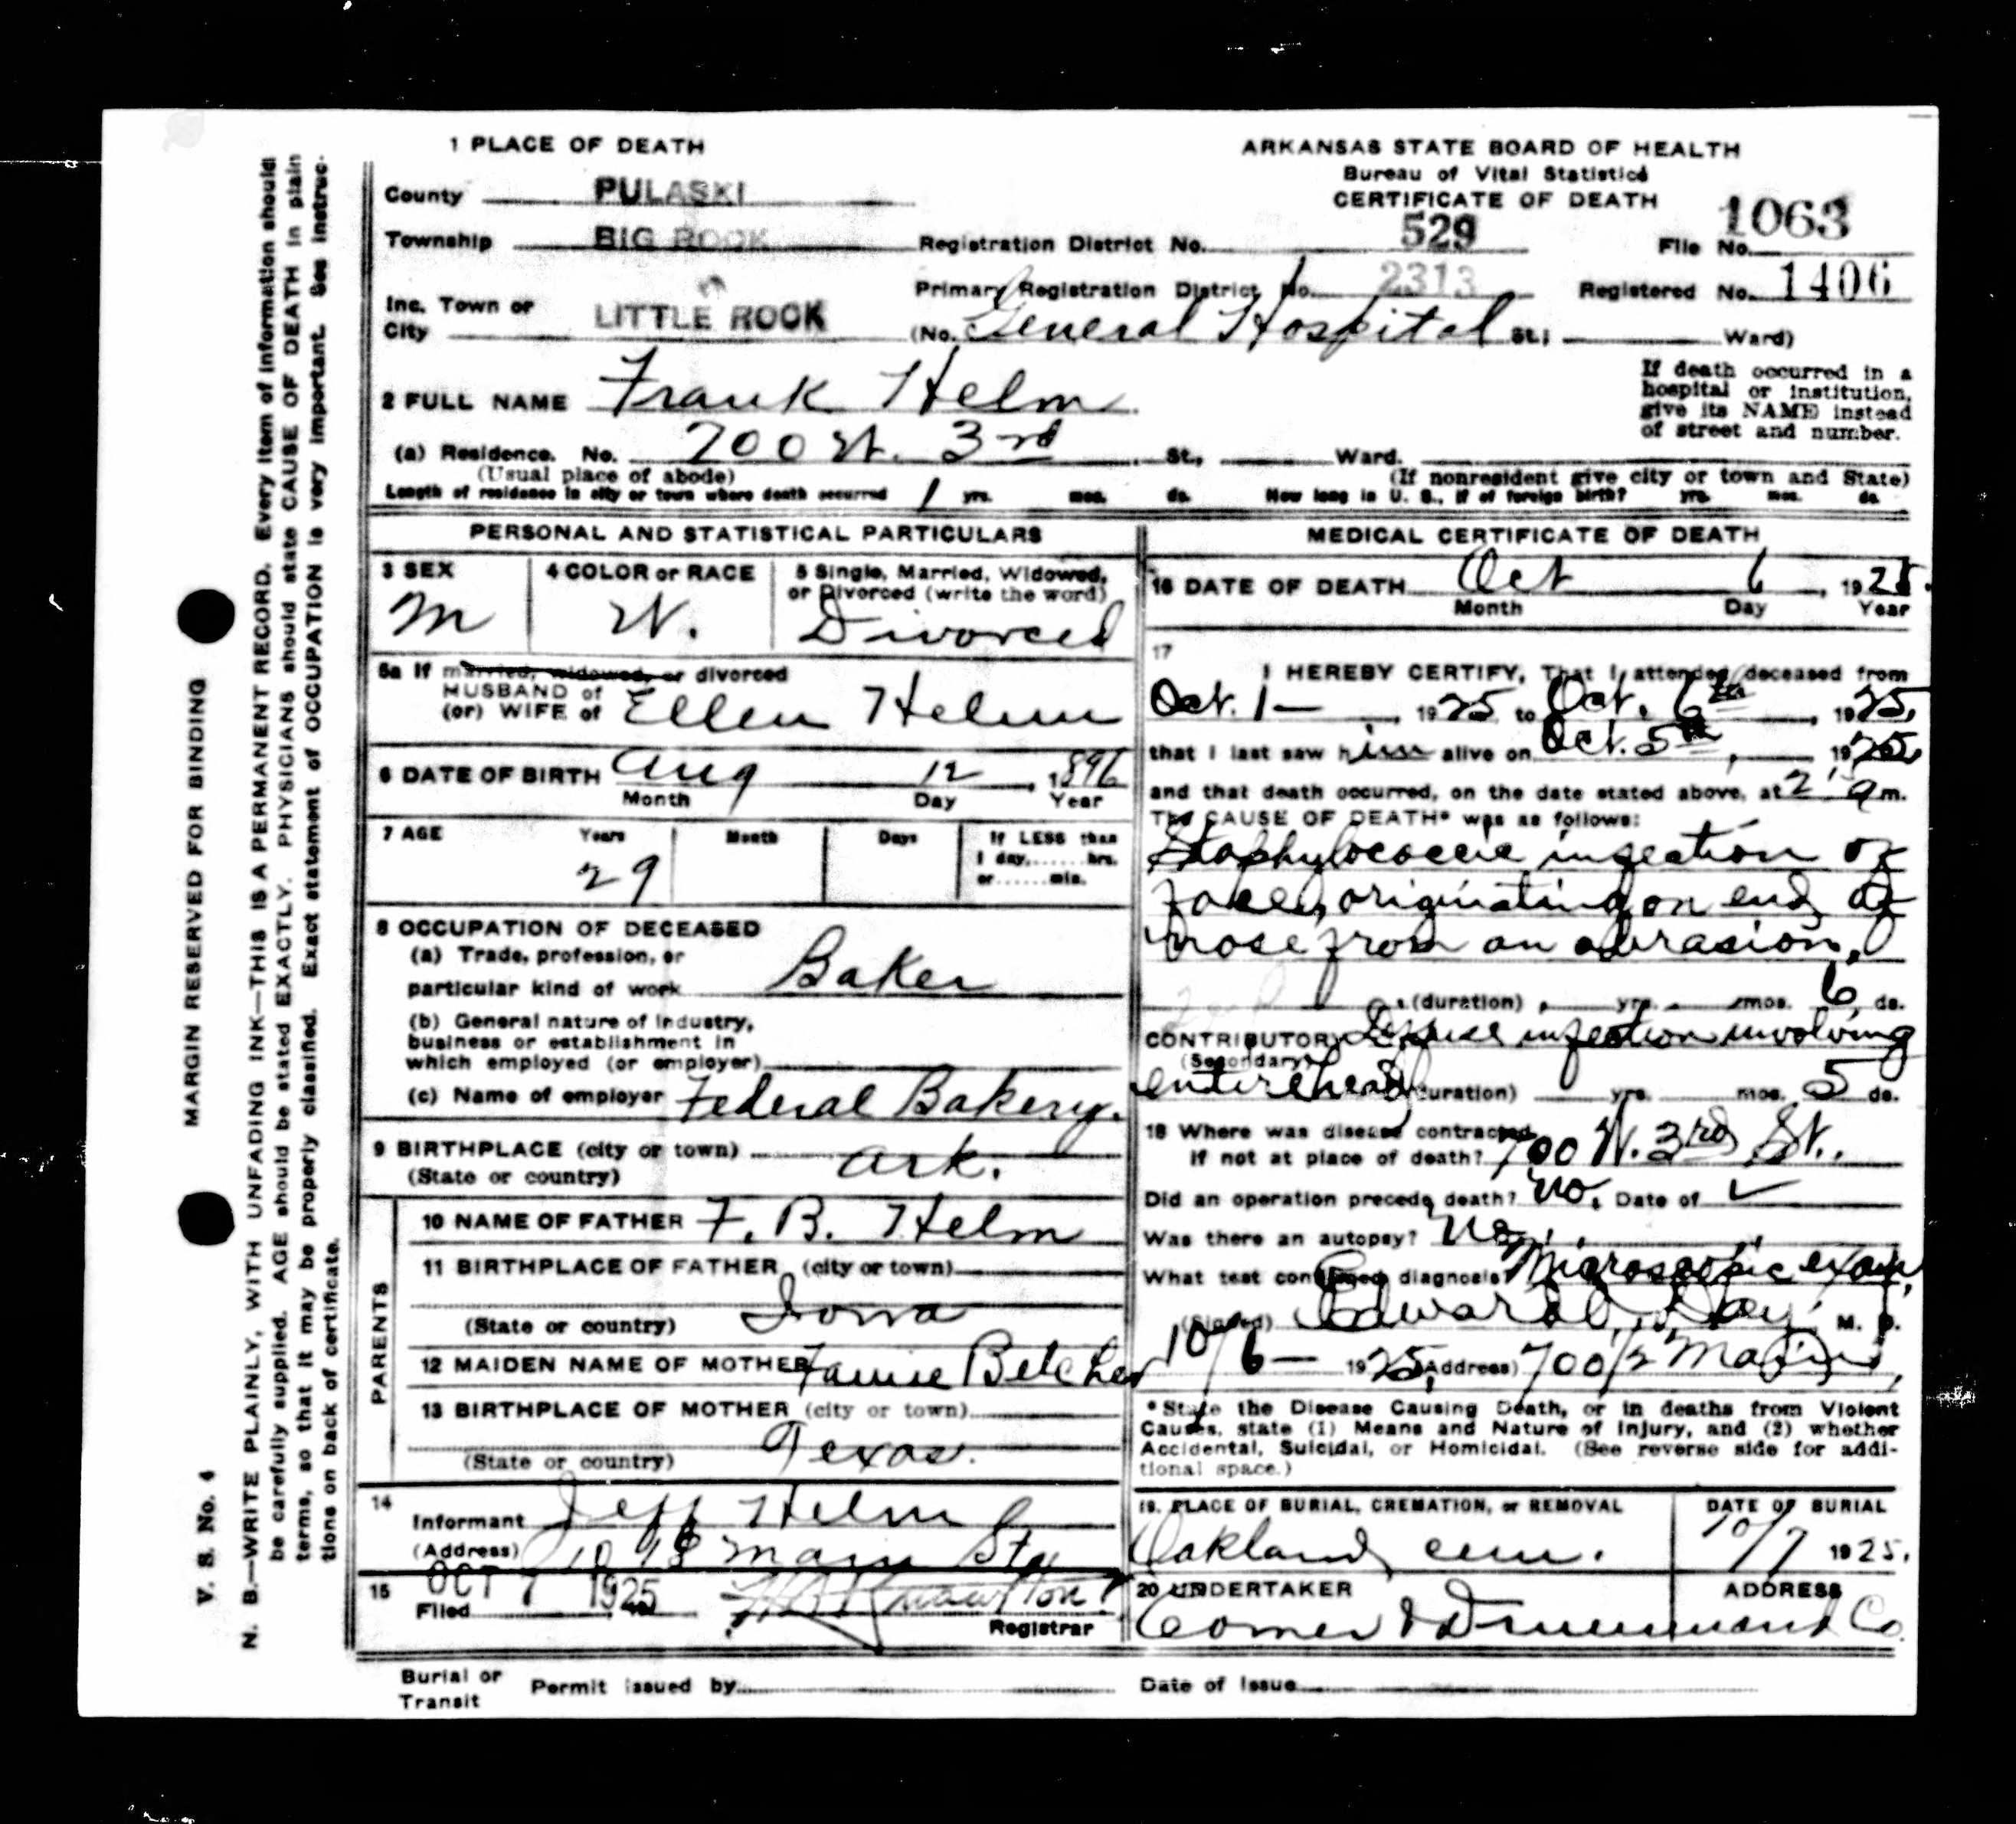 1 PLACE OF DEATH
County PULASKI
Township BIG ROCK
Inc. Town or City LITTLE ROCK
ARKANSAS STATE BOARD OF HEALTH
Bureau of Vital Statistics
CERTIFICATE OF DEATH
Registration District No. 529
File No. 1063
Primary Registration District No. 2313
Registered No. 1406
(No. General Hospital St.; Ward)
If death occurred in a
hospital or institution,
give its NAME instead
of street and number.
2 FULL NAME Frank Helm
(a) Residence. No. 700 W. 3rd St., Ward.
(Usual place of abode)
(If nonresident give city or town and State)
Length of residence in city or town where death occurred 1 yrs. mos. ds. How long in U. S., if of foreign birth? yrs. mos. ds.
PERSONAL AND STATISTICAL PARTICULARS
3 SEX
M
4 COLOR or RACE
W.
5 Single, Married, Widowed,
or Divorced (write the word)
Divorced
5a If married, widowed, or divorced
HUSBAND of
(or) WIFE of Ellen Helm
6 DATE OF BIRTH Aug 12, 1896
Month Day Year
7 AGE Years Month Days If LESS than
1 day,.......hrs.
or.......min.
29
8 OCCUPATION OF DECEASED
(a) Trade, profession, or
particular kind of work Baker
(b) General nature of Industry,
business or establishment in
which employed (or employer)
(c) Name of employer Federal Bakery.
9 BIRTHPLACE (city or town)
(State or country) Ark.
PARENTS
10 NAME OF FATHER F. B. Helm
11 BIRTHPLACE OF FATHER (city or town)
(State or country) Iowa
12 MAIDEN NAME OF MOTHER Belcher
13 BIRTHPLACE OF MOTHER (city or town)
(State or country) Texas.
14
Informant Jeff Helm
(Address) Main St
15
Filed OCT 7 1925
Registrar
MEDICAL CERTIFICATE OF DEATH
16 DATE OF DEATH Oct 6, 1925.
Month Day Year
17
I HEREBY CERTIFY, That I attended deceased from
Oct. 1 —, 1925 to Oct. 6th, 1925,
that I last saw him alive on Oct. 5th, 1925,
and that death occurred, on the date stated above, at 2 a m.
The CAUSE OF DEATH* was as follows:
Staphylococcic infection of
face, originating on end of
nose from an abrasion.
(duration) yrs. mos. 6 ds.
CONTRIBUTORY Diffuse infection involving
(Secondary)
entire head (duration) yrs. mos. 5 ds.
18 Where was disease contracted
If not at place of death? 700 W. 3rd St.
Did an operation precede death? no. Date of ✓
Was there an autopsy? No.
What test confirmed diagnosis? Microscopic exam
(Signed) Edward Day, M. D.
10/6— 1925, (Address) 700 1/2 Main
*State the Disease Causing Death, or in deaths from Violent
Causes, state (1) Means and Nature of Injury, and (2) whether
Accidental, Suicidal, or Homicidal. (See reverse side for addi-
tional space.)
19. PLACE OF BURIAL, CREMATION, or REMOVAL
Oakland cem.
DATE OF BURIAL
10/7 1925.
20 UNDERTAKER ADDRESS
Drummond Co.
Burial or
Transit Permit issued by
Date of Issue
V. S. No. 4
MARGIN RESERVED FOR BINDING
N. B.—WRITE PLAINLY, WITH UNFADING INK—THIS IS A PERMANENT RECORD. Every item of information should
be carefully supplied. AGE should be stated EXACTLY. PHYSICIANS should state CAUSE OF DEATH in plain
terms, so that it may be properly classified. Exact statement of OCCUPATION is very important. See instruc-
tions on back of certificate.